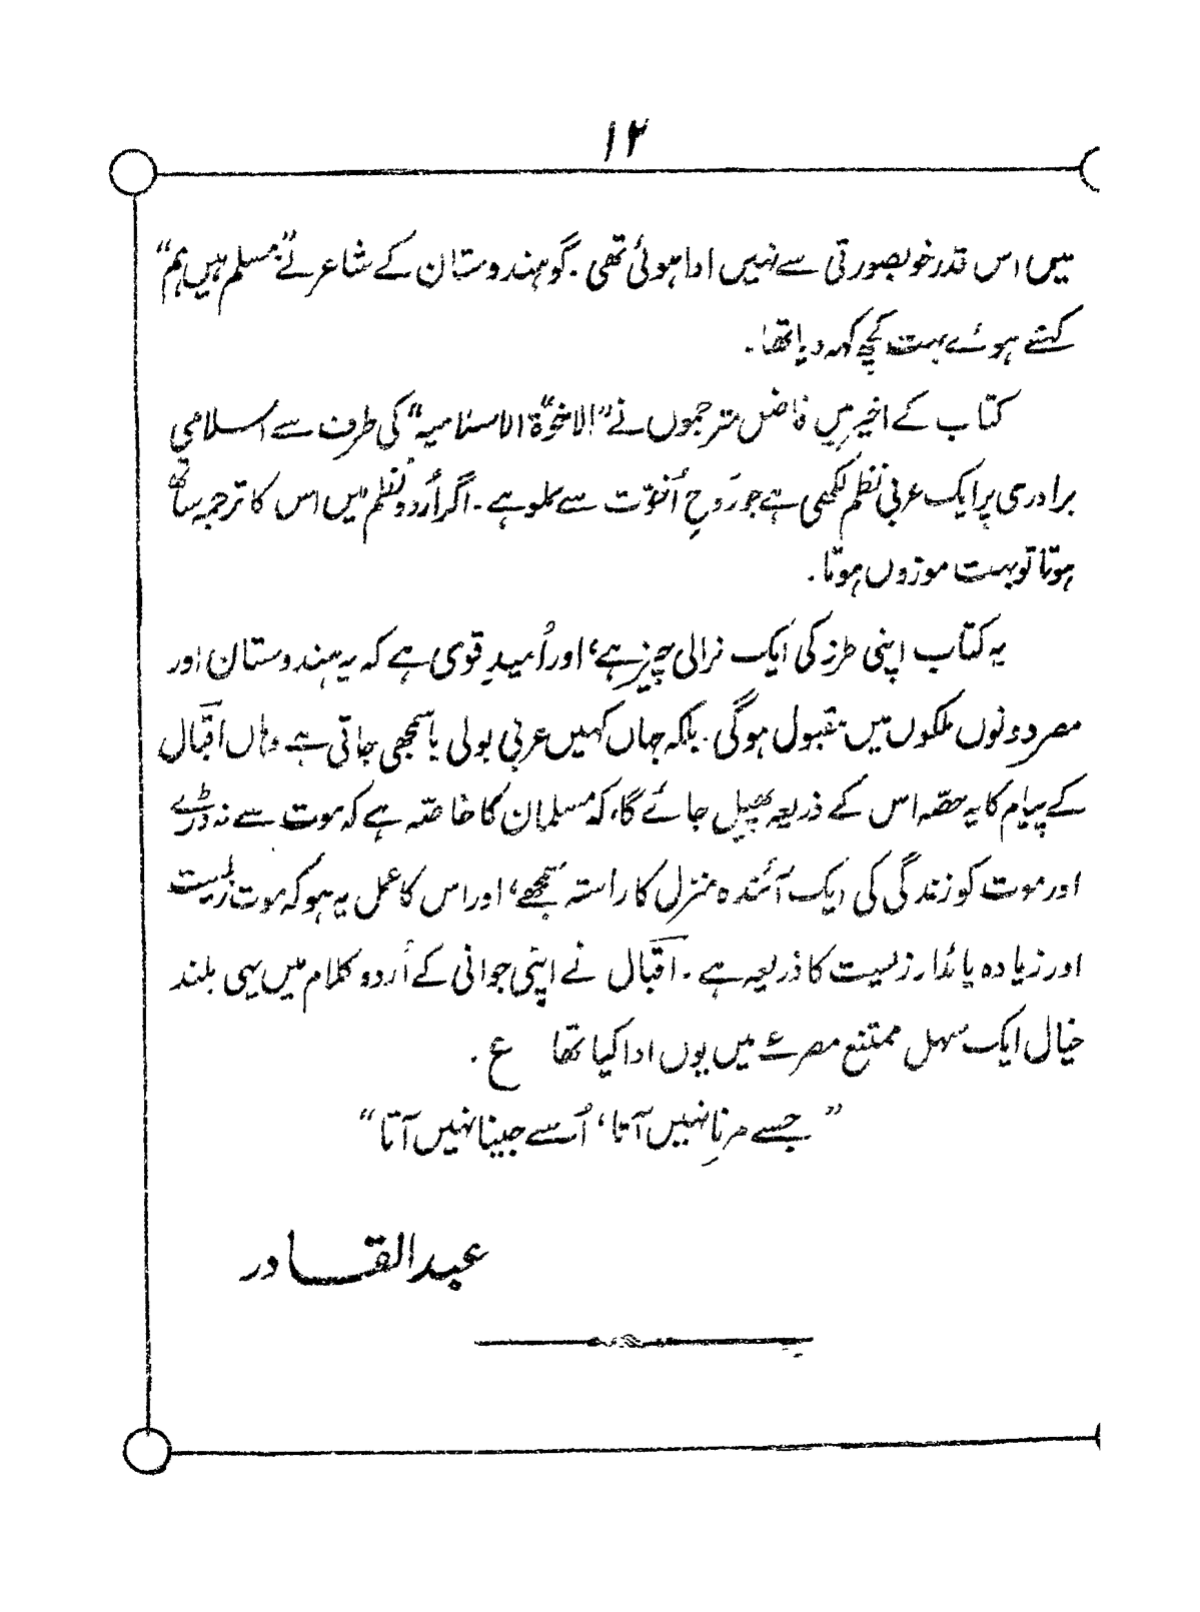 ۱۲
میں اس قدر خوبصورتی سے نہیں ادا ہوئی تھی۔ گو ہندوستان کے شاعر نے "مسلم ہیں ہم"
کہتے ہوئے بہت کچھ کہہ دیا تھا۔
کتاب کے اخیر میں فاضل مترجموں نے "الاخوّة الاسلامیہ" کی طرف سے اسلامی
برادری پر ایک عربی نظم لکھی ہے جو رَوحِ اُخوّت سے مملو ہے۔ اگر اُردو نظم میں اس کا ترجمہ ساتھ
ہوتا تو بہت موزوں ہوتا۔
یہ کتاب اپنی طرز کی ایک نرالی چیز ہے، اور اُمیدِ قوی ہے کہ یہ ہندوستان اور
مصر دونوں ملکوں میں مقبول ہوگی۔ بلکہ جہاں کہیں عربی بولی یا سمجھی جاتی ہے وہاں اقبال
کے پیام کا یہ حصّہ اس کے ذریعہ پھیل جائے گا، کہ مسلمان کا خاصّہ ہے کہ موت سے نہ ڈرے
اور موت کو زندگی کی ایک آئندہ منزل کا راستہ سمجھے، اور اس کا عمل یہ ہو کہ موت زیست
اور زیادہ پائدار زیست کا ذریعہ ہے۔ اقبال نے اپنی جوانی کے اُردو کلام میں یہی بلند
خیال ایک سہل ممتنع مصرعے میں یوں ادا کیا تھا ع۔
"جسے مرنا نہیں آتا، اُسے جینا نہیں آتا"
عبدالقادر